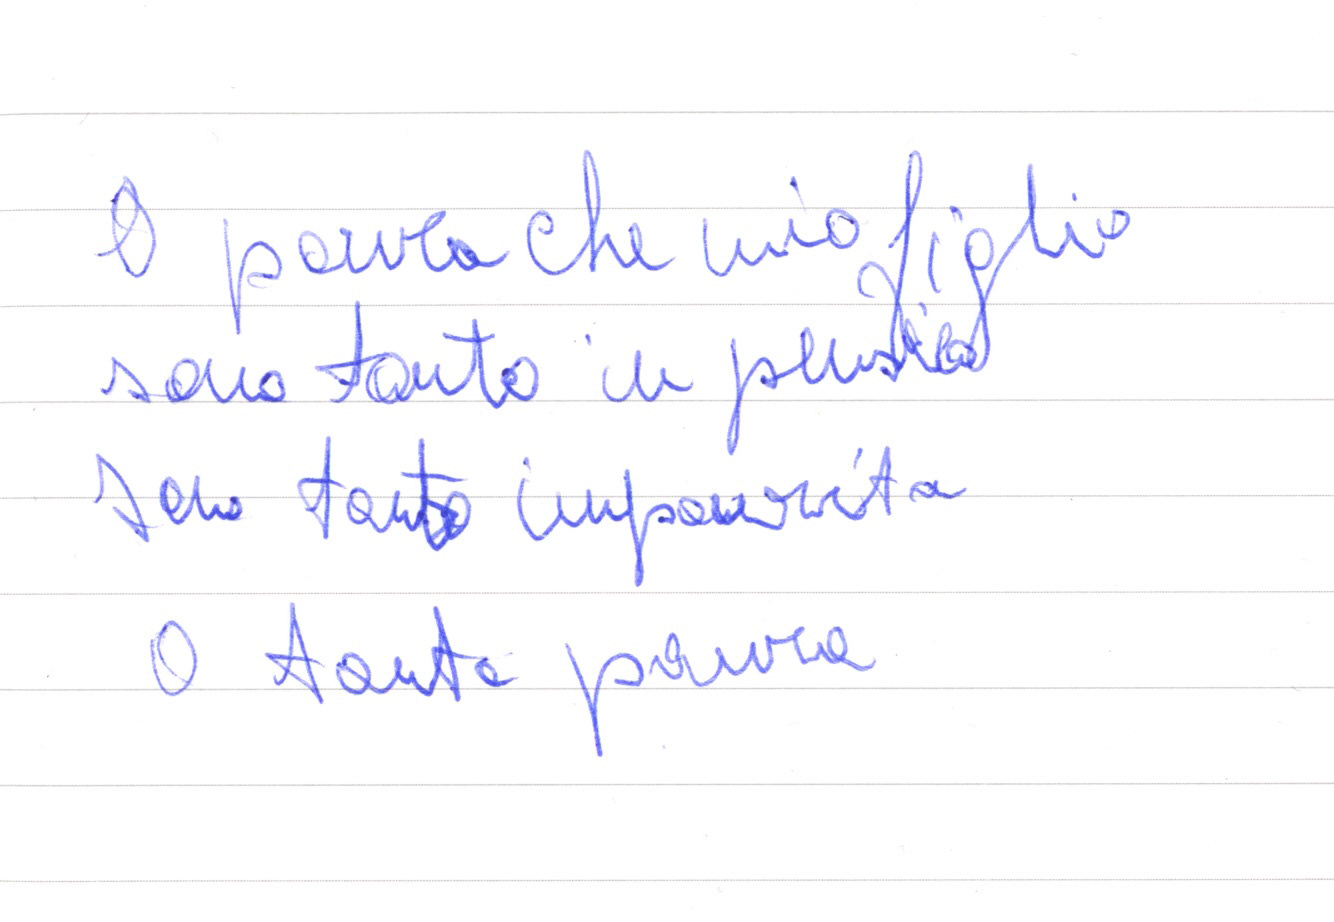 O paura che mio figlio
sono tanto in pensia
Sono tanto impaurita
O tanta paura